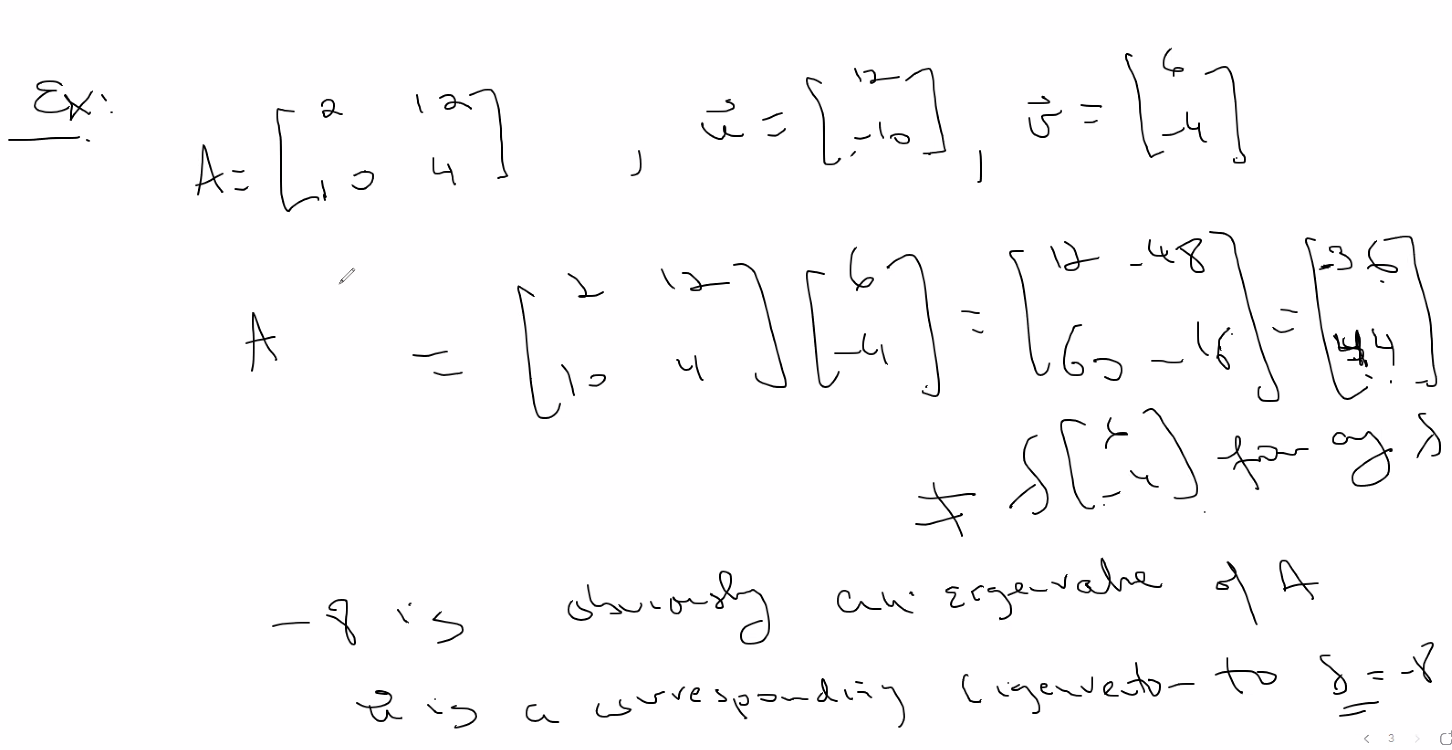 Ex: A = [ 2 12 ; 10 4 ] , u⃗ = [ 12 ; -10 ] , v⃗ = [ 6 ; -4 ]
A = [ 2 12 ; 10 4 ] [ 6 ; -4 ] = [ 12 -48 ; 60 -16 ] = [ -36 ; 44 ]
≠ λ [ 6 ; -4 ] for any λ
-8 is obviously an eigenvalue of A
u⃗ is a corresponding eigenvector to λ = -8
3